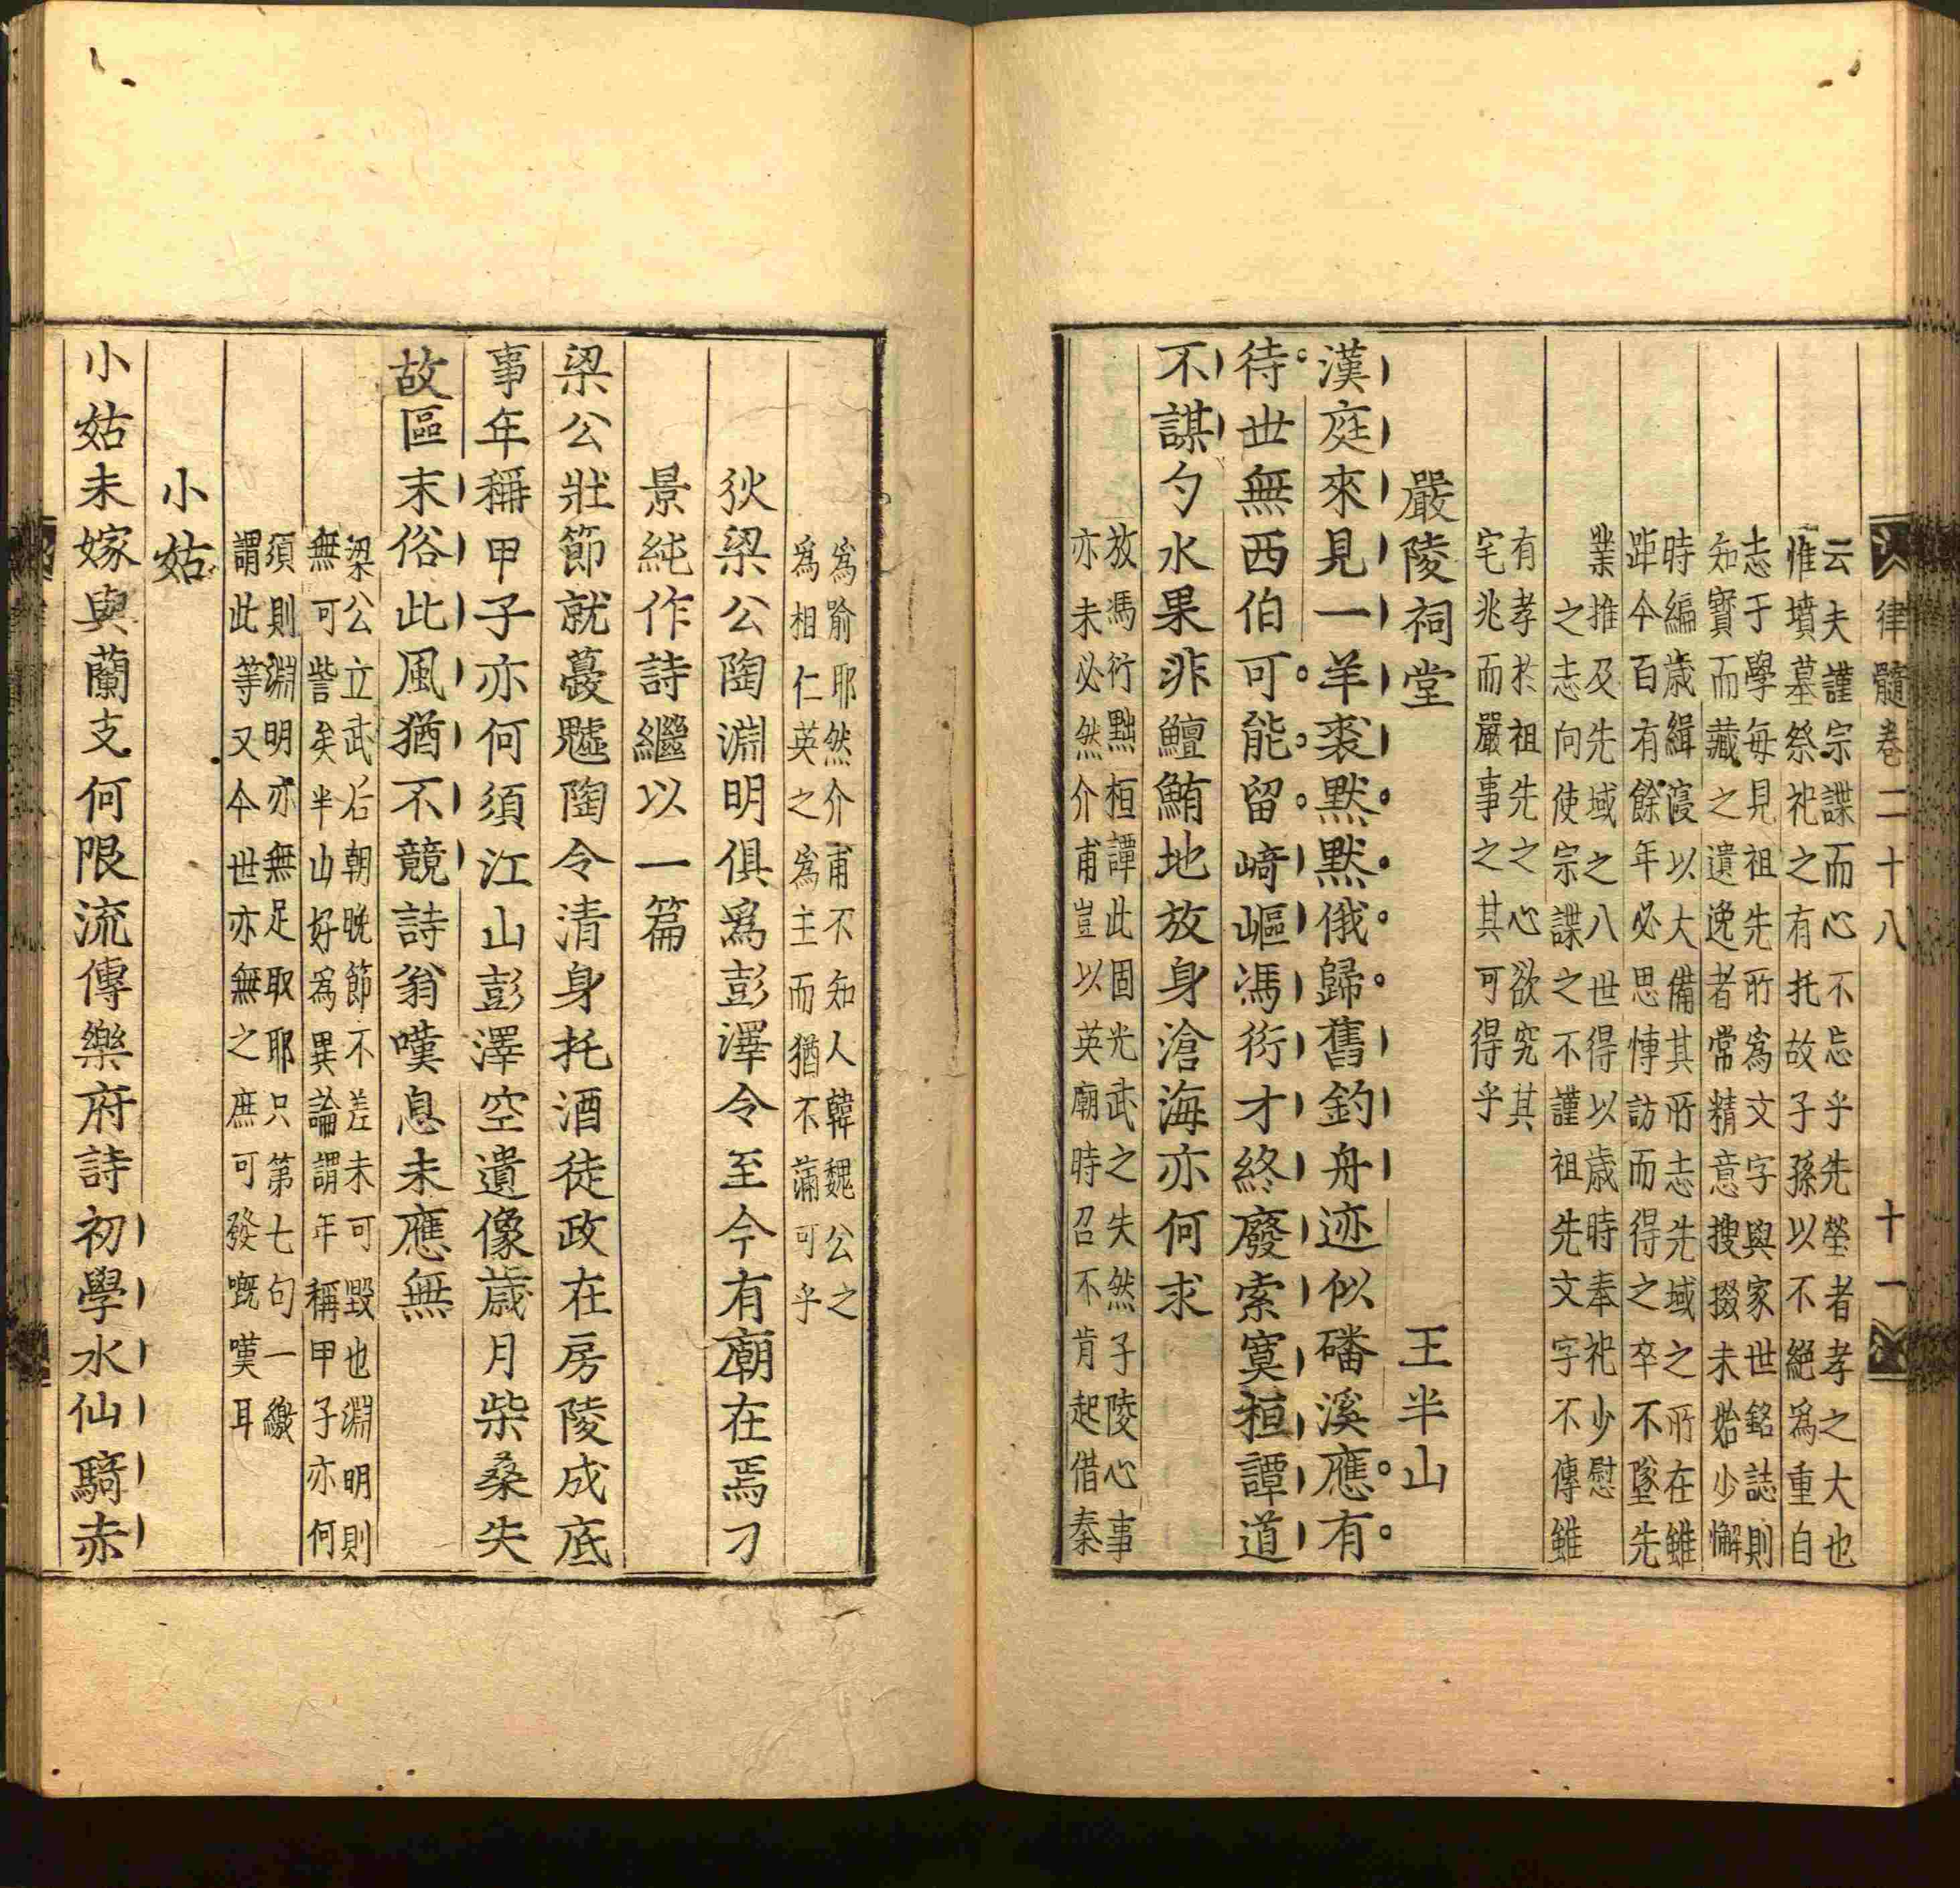 律髓卷二十八　十一
云夫謹宗諜而心不忘乎先塋者孝之大也
惟墳墓祭祀之有托故子孫以不絕爲重自
志于學每見祖先所爲文字與家世銘誌則
知寳而藏之遺逸者常精意搜掇未始少懈
時編歲緝寖以大備其所志先域之所在雖
距今百有餘年必思慱訪而得之卒不墜先
業推及先域之八世得以歲時奉祀少慰
之志向使宗諜之不謹祖先文字不傳雖
有孝於祖先之心欲究其
宅兆而嚴事之其可得乎
嚴陵祠堂　王半山
漢庭來見一羊裘默默俄歸舊釣舟迹似磻溪應有
待世無西伯可能留崎嶇馮衍才終廢索寞桓譚道
不謀勺水果非鱣鮪地放身滄海亦何求
放馮衍黜桓譚此固光武之失然子陵心事
亦未必然介甫豈以英廟時召不肯起借秦
爲喻耶然介甫不知人韓魏公之
爲相仁英之爲主而猶不蒲可乎
狄梁公陶淵明俱爲彭澤令至今有廟在焉刁
景純作詩繼以一篇
梁公壯節就夔魖陶令清身托酒徒政在房陵成底
事年稱甲子亦何須江山彭澤空遺像歲月柴桑失
故區末俗此風猶不競詩翁嘆息未應無
梁公立武后朝晚節不差未可毀也淵明則
無可訾矣半山好爲異論謂年稱甲子亦何
須則淵明亦無足取耶只第七句一繳
謂此等又今世亦無之庶可發嘅嘆耳
小姑
小姑未嫁與蘭支何限流傳樂府詩初學水仙騎赤